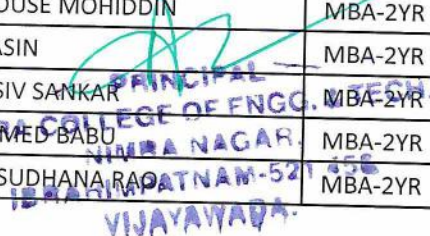 OUSE MOHIDDIN MBA-2YR
ASIN MBA-2YR
SIV SANKAR MBA-2YR
MED BABU MBA-2YR
SUDHANA RAO MBA-2YR
PRINCIPAL
RA COLLEGE OF ENGG. & TECH.
NIMRA NAGAR,
IBRAHIMPATNAM-521 456
VIJAYAWADA.